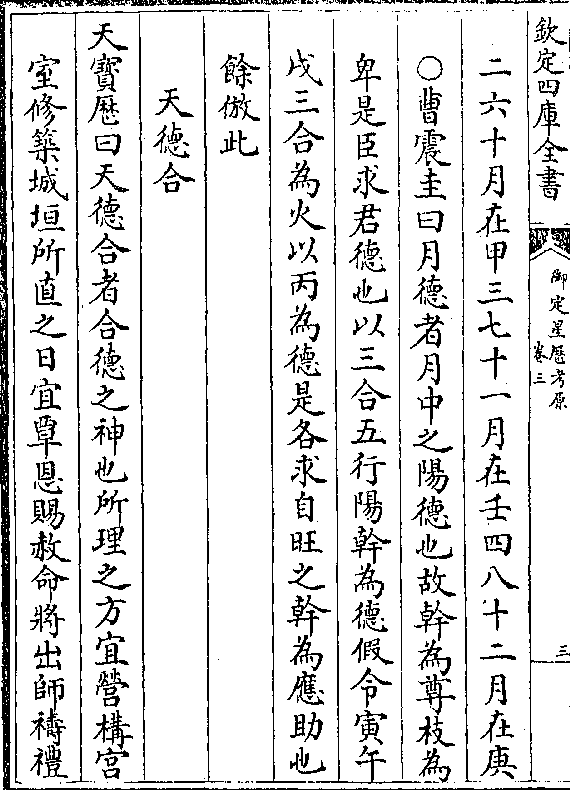 欽定四庫全書
御定星歷考原
卷三
三
二六十月在甲三七十一月在壬四八十二月在庚
○曹震圭曰月德者月中之陽德也故幹為尊枝為
卑是臣求君德也以三合五行陽幹為德假令寅午
戌三合為火以丙為德是各求自旺之幹為應助也
餘倣此
天德合
天寶歷曰天德合者合德之神也所理之方宜營構宮
室修築城垣所直之日宜覃恩賜赦命將出師禱禮